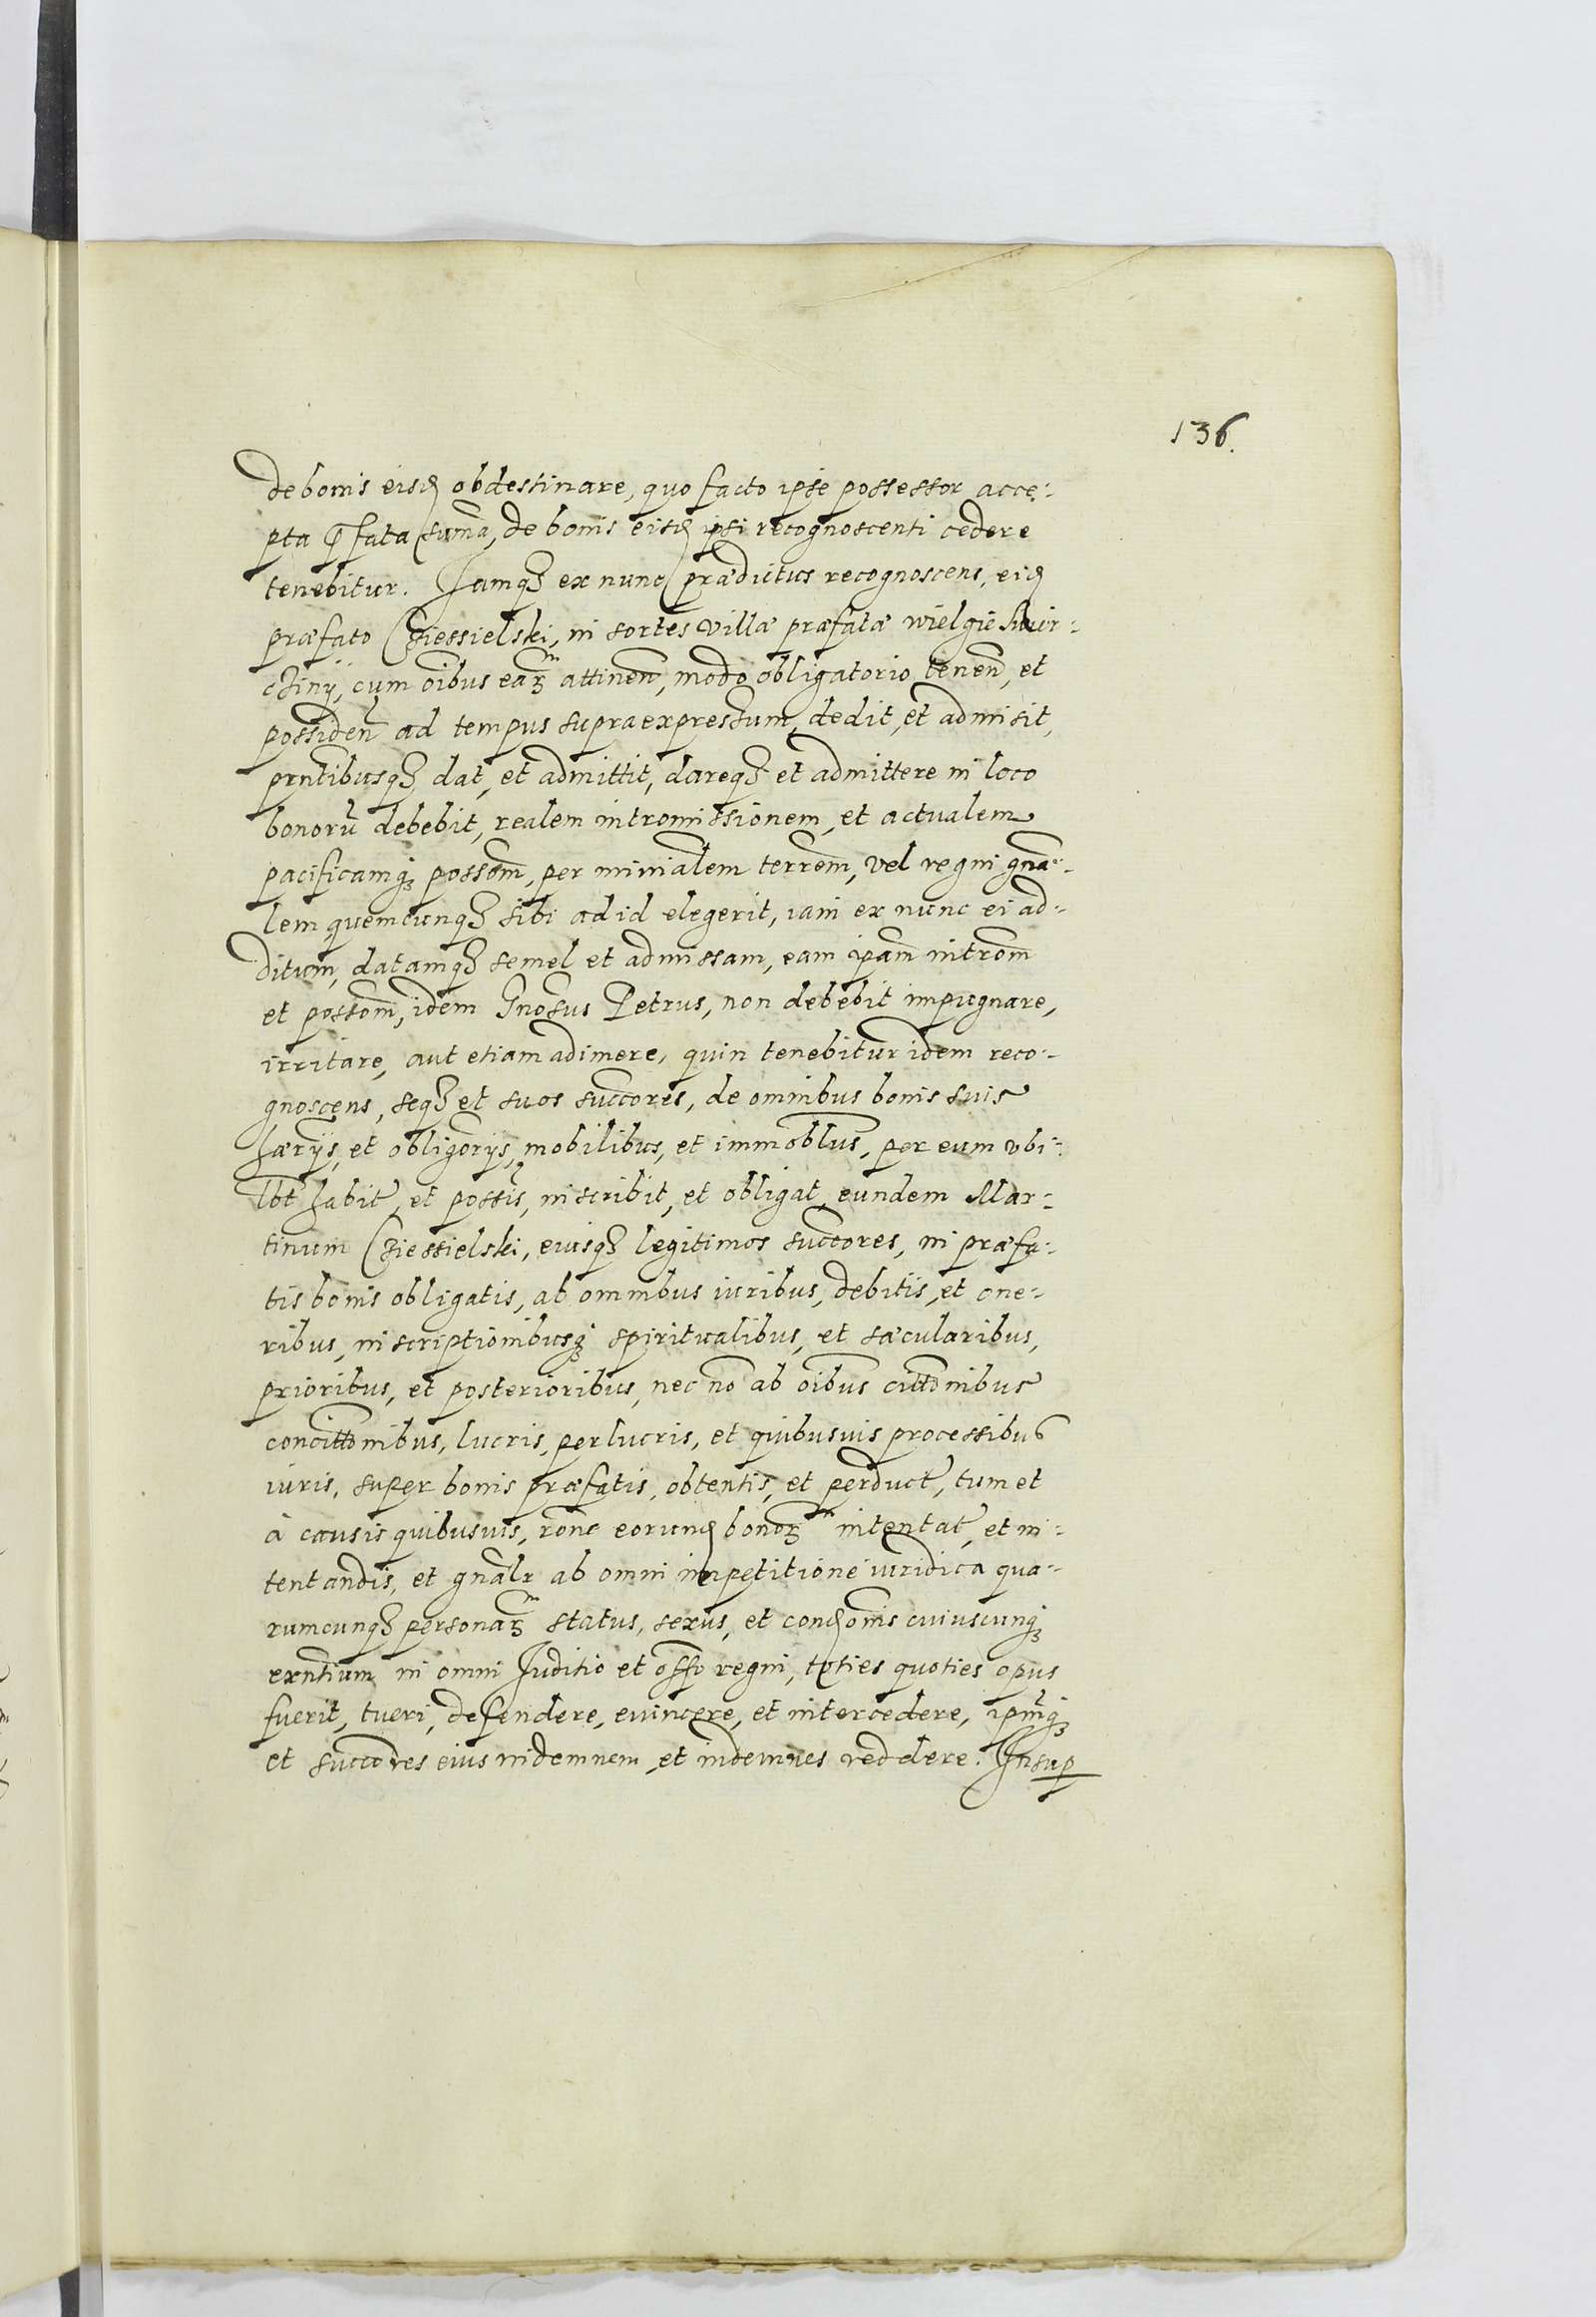 136.
de bonis eisd obdestinare, quo facto ipse possessor acce-
pta pfata suma, de bonis eisd ipsi recognoscenti cedere
tenebitur. Iamq3 ex nunc prædictus recognoscens, eid
præfato Ciessielski, in sortes villæ præfatæ wielgie
cum oibus ear attinen, modo obligatorio tenen, et
possiden ad tempus supraexpressum, dedit, et admisit,
pntibusq3 dat, et admittit, dareq3 et admittere in loco
bonorũ debebit, realem intromissionem, et actualem
pacificamq3 possom, per minialem terrem, vel regni gna-
lem quemcunq3 sibi ad id elegerit, iam ex nunc ei ad-
ditum, datamq3 semel et admissam, eam ipam introm
et possom, idem Gnosus Petrus, non debebit impugnare,
irritare, aut etiam adimere, quin tenebitur idem reco-
gnoscens, seq3 et suos succores, de omnibus bonis suis
hærijs, et obligorijs, mobilibus, et immoblus, per eum vbi-
lbt habit, et possis, inscribit, et obligat, eundem Mar-
tinum Ciessielski, eiusq3 legitimos succores, in præfa-
tis bonis obligatis, ab omnibus iuribus, debitis, et one-
ribus, inscriptionibusq3 spiritualibus, et sæcularibus,
prioribus, et posterioribus, nec nõ ab oibus cittonibus
concittonibus, lucris, perlucris, et quibusuis processibus
iuris, super bonis præfatis, obtentis, et perduct, tum et
à causis quibusuis, rone eorund bonor intentat, et in-
tentandis, et gnalr ab omni impetitione iuridica qua-
rumcunq3 personar status, sexus, et condonis cuiuscunq3
exntium in omni Iuditio et offo regni, toties quoties opus
fuerit, tueri, defendere, euincere, et intercedere, ipmq3
et succores eius indemnem, et indemnes reddere. Insup